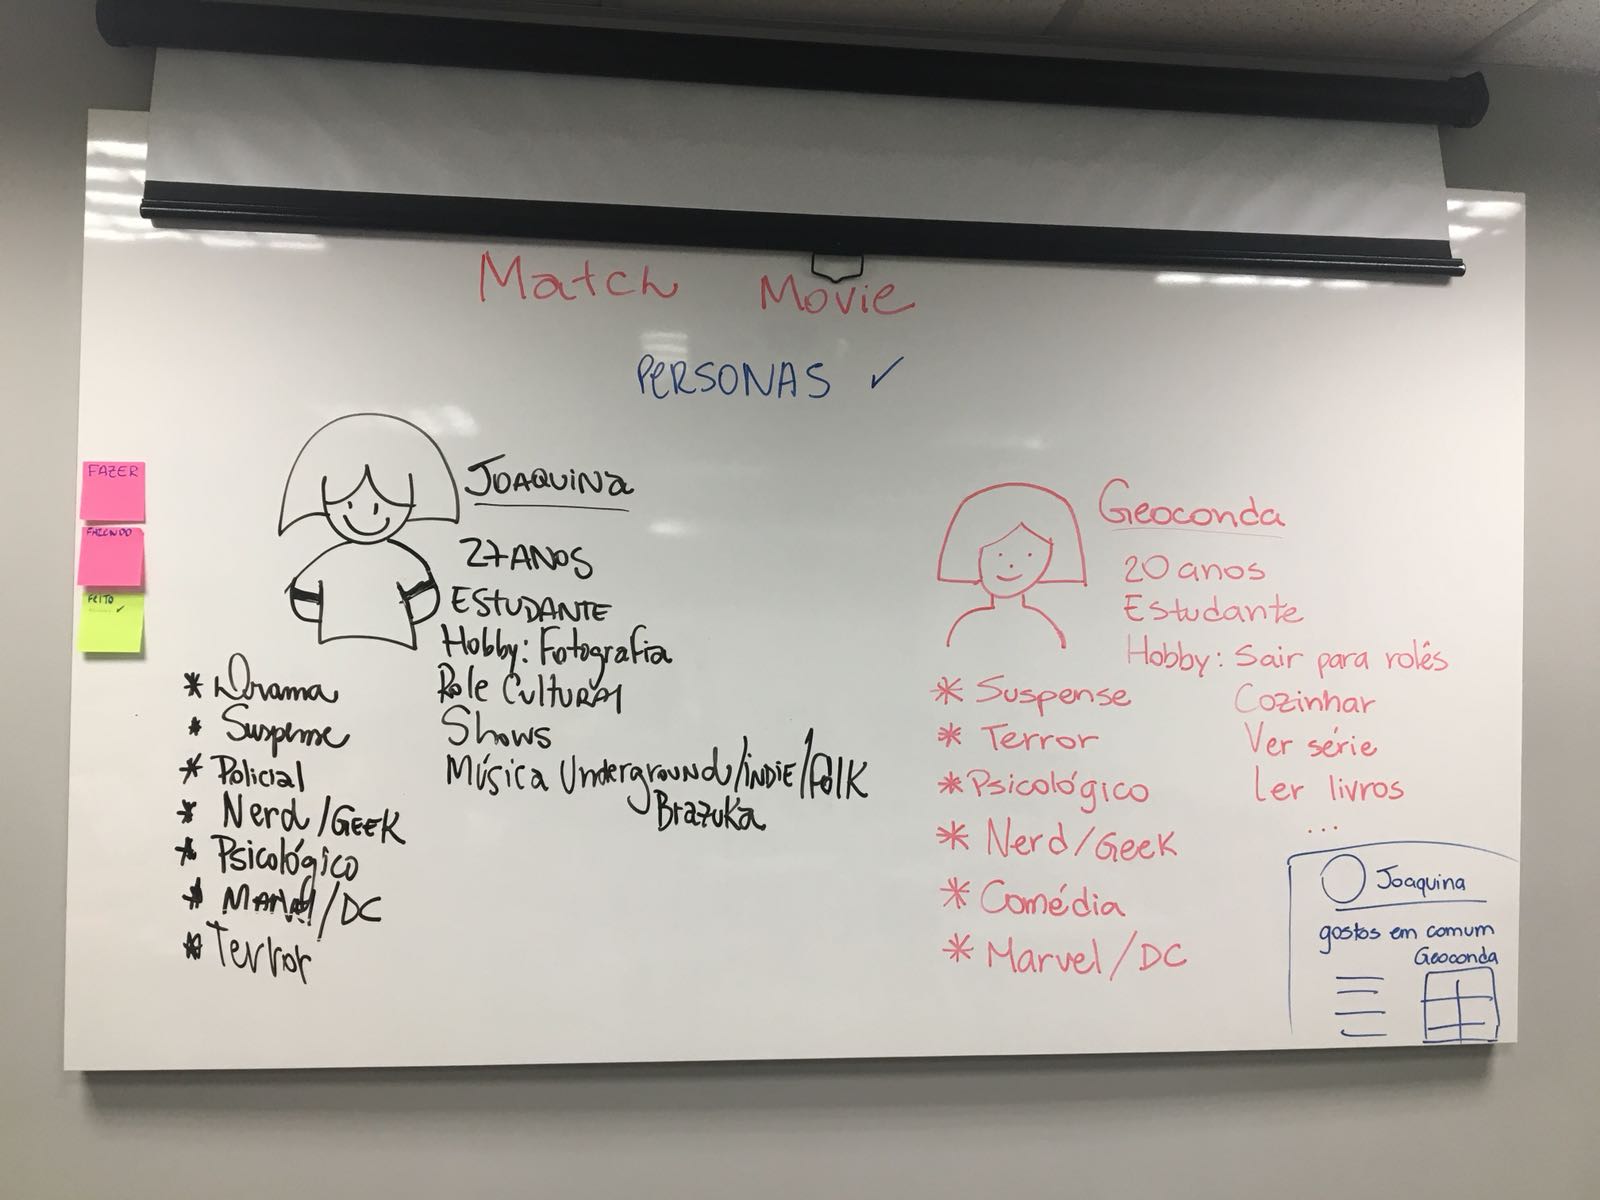 Match Movie
PERSONAS ✓
FAZER
FAZENDO
FEITO
✓
JOAQUINA
27 ANOS
ESTUDANTE
Hobby: Fotografia
Role Cultural
Shows
Música Underground/INDIE/Folk
Brazuka
* Drama
* Suspense
* Policial
* Nerd/GEEK
* Psicológico
* Marvel/DC
* Terror
Geoconda
20 anos
Estudante
Hobby: Sair para rolês
Cozinhar
Ver série
Ler livros
...
* Suspense
* Terror
* Psicológico
* Nerd/Geek
* Comédia
* Marvel/DC
Joaquina
gostos em comum
Geoconda